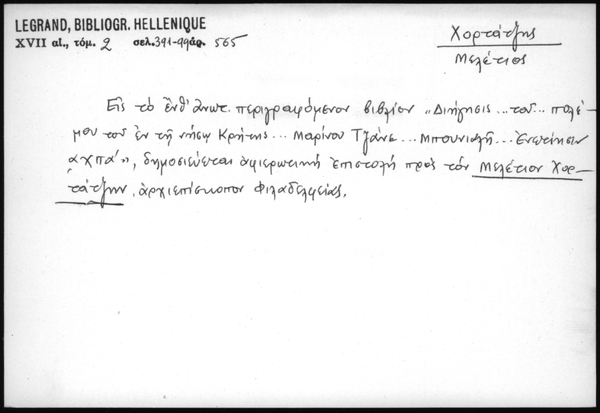 LEGRAND, BIBLIOGR. HELLENIQUE
XVII αἰ., τόμ. 2 σελ. 391-99 ἀρ. 565
Χορτάτζης
Μελέτιος
Εἰς τὸ ἔνθ' ἀνωτ. περιγραφόμενον βιβλίον „Διήγησις... τοῦ... πολέ-
μου τοῦ ἐν τῇ νήσῳ Κρήτης... Μαρίνου Τζάνε... Μπουνιαλῆ... Ἐνετίησιν
αχπα'", δημοσιεύεται ἀφιερωτικὴ ἐπιστολὴ πρὸς τὸν Μελέτιον Χορ-
τάτζην, ἀρχιεπίσκοπον Φιλαδελφείας.